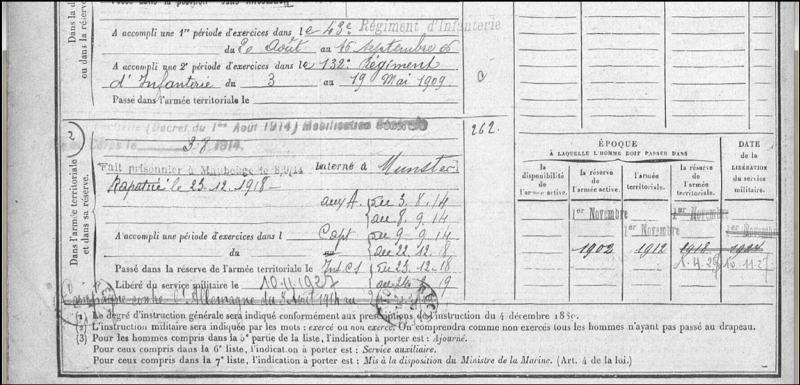 Dans la d
ou dans la réserve
A accompli une 1re période d'exercices dans le 43e Régiment d'Infanterie
du 20 Août au 16 Septembre 06
A accompli une 2e période d'exercices dans le 132e Régiment
d'Infanterie du 3 au 19 Mai 1909
Passé dans l'armée territoriale le
2
Dans l'armée territoriale
et dans sa réserve.
(Décret du 1er Août 1914) Mobilisation
Corps le 3-8 1914.
262.
Fait prisonnier à Maubeuge le 8/9/14 Interné à Munster
Rapatrié le 23.12.1918
aux A. du 3.8.14
au 8.9.14
A accompli une période d'exercices dans l Capt du 9.9.14
du au 22.12.18
Passé dans la réserve de l'armée territoriale le Int. CS du 23.12.18
Libéré du service militaire le 10.11.1927
contre l'Allemagne du 3 Août 1914 au
ÉPOQUE
À LAQUELLE L'HOMME DOIT PASSER DANS
DATE
DE LA
LIBÉRATION
du service
militaire.
la disponibilité de l'armée active.
la réserve de l'armée active.
l'armée territoriale.
la réserve de l'armée territoriale.
1er Novembre 1er Novembre 1er Novembre 1er Novembre
1902 1912 1918
10.11.27
(1) Le degré d'instruction générale sera indiqué conformément aux prescriptions de l'instruction du 4 décembre
(2) L'instruction militaire sera indiquée par les mots : exercé ou non exercé. On comprendra comme non exercés tous les hommes n'ayant pas passé au drapeau.
(3) Pour les hommes compris dans la 5e partie de la liste, l'indication à porter est : Ajourné.
Pour ceux compris dans la 6e liste, l'indication à porter est : Service auxiliaire.
Pour ceux compris dans la 7e liste, l'indication à porter est : Mis à la disposition du Ministre de la Marine. (Art. 4 de la loi.)